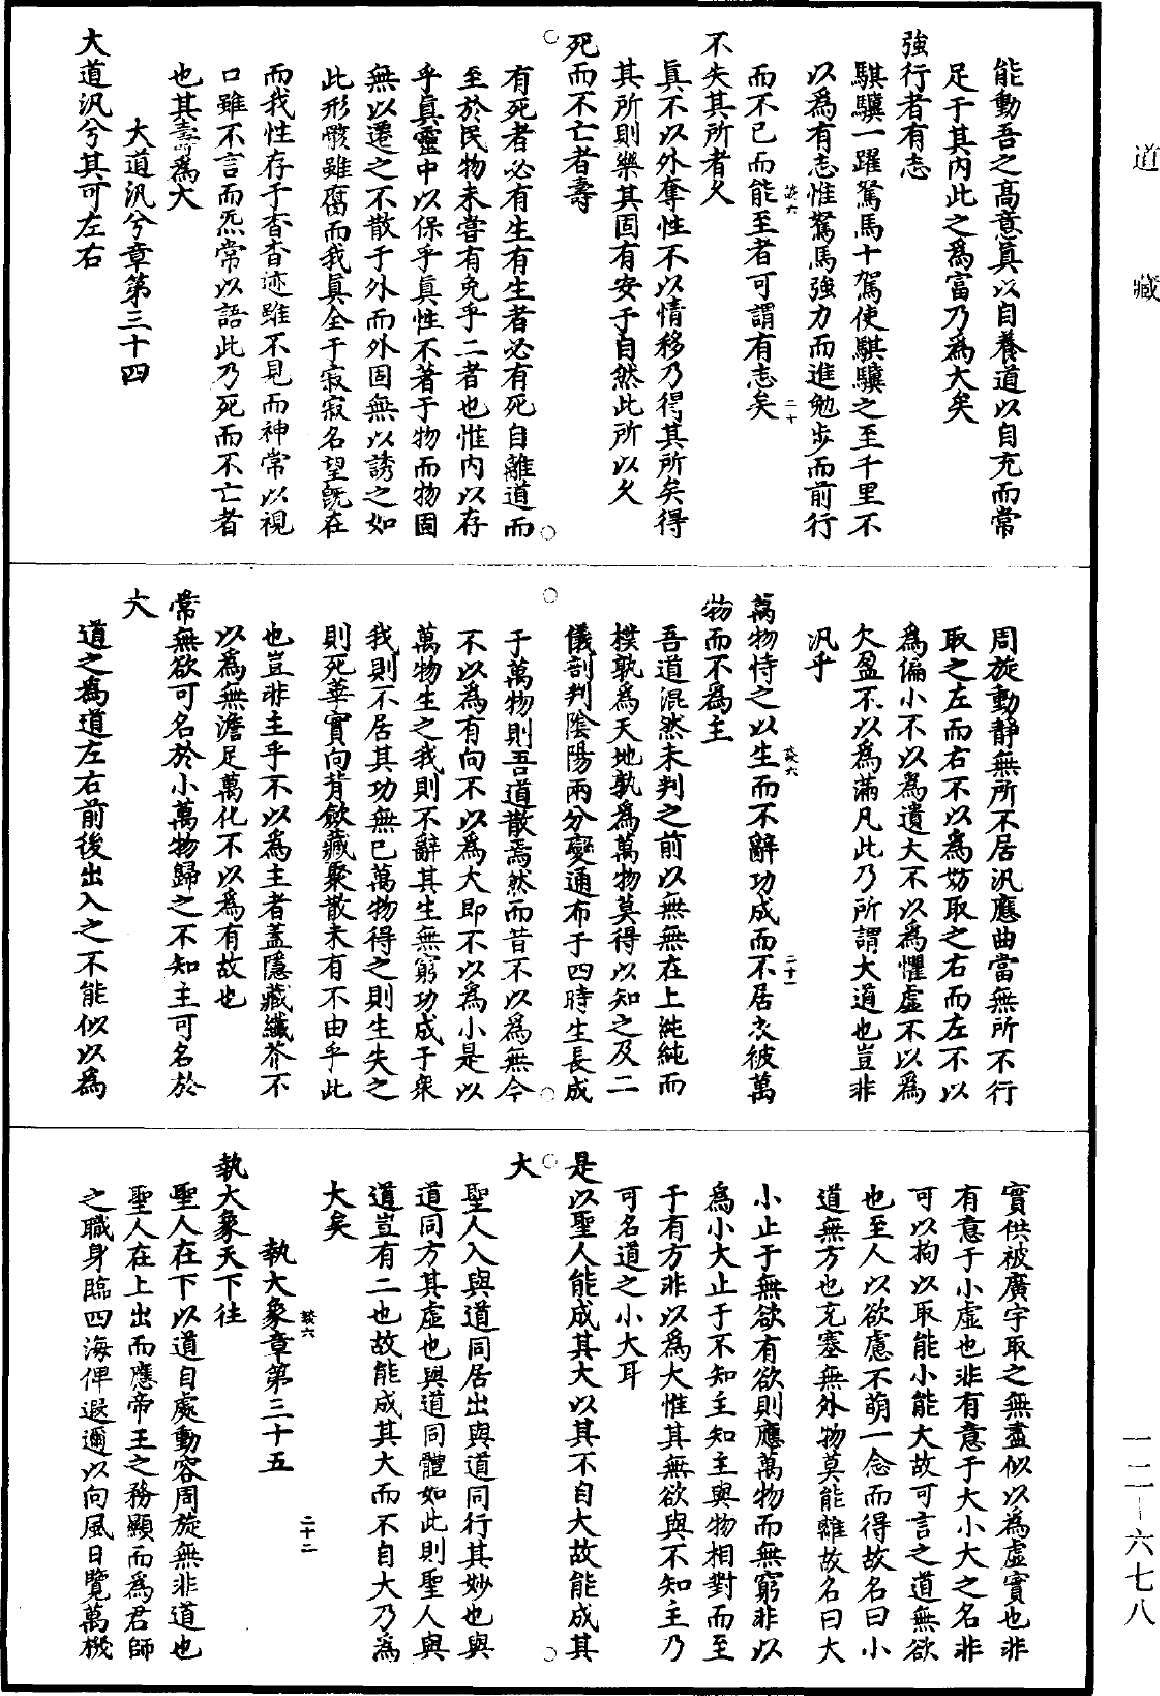 道藏
能動吾之高意真以自養道以自充而常
足于其内此之為富乃為大矣
強行者有志
騏驥一躍駑馬十駕使騏驥之至千里不
以為有志惟駑馬強力而進勉步而前行
而不已而能至者可謂有志矣
談六
二十
不失其所者久
真不以外奪性不以情移乃得其所矣得
其所則樂其固有安于自然此所以久
死而不亡者壽
有死者必有生有生者必有死自離道而
至於民物未嘗有免乎二者也惟内以存
乎真靈中以保乎真性不著于物而物固
無以遷之不散于外而外固無以誘之如
此形骸雖腐而我真全于寂寂名望既在
而我性存于杳杳迹雖不見而神常以視
口雖不言而炁常以語此乃死而不亡者
也其壽為大
大道汎兮章第三十四
大道汎兮其可左右
周旋動靜無所不居汎應曲當無所不行
取之左而右不以為妨取之右而左不以
為偏小不以為遺大不以為懼虛不以為
欠盈不以為滿凡此乃所謂大道也豈非
汎乎
萬物恃之以生而不辭功成而不居衣被萬
談六
二十一
物而不為主
吾道混然未判之前以無無在上純純而
樸孰為天地孰為萬物莫得以知之及二
儀剖判陰陽兩分變通布于四時生長成
于萬物則吾道散焉然而昔不以為無今
不以為有向不以為大即不以為小是以
萬物生之我則不辭其生無窮功成于眾
我則不居其功無已萬物得之則生失之
則死華實向背歛藏聚散未有不由乎此
也豈非主乎不以為主者蓋隱藏纖芥不
以為無澹足萬化不以為有故也
常無欲可名於小萬物歸之不知主可名於
大
道之為道左右前後出入之不能似以為
實供被廣宇取之無盡似以為虛實也非
有意于小虛也非有意于大小大之名非
可以拘以取能小能大故可言之道無欲
也至人以欲慮不萌一念而得故名曰小
道無方也充塞無外物莫能離故名曰大
小止于無欲有欲則應萬物而無窮非以
為小大止于不知主知主與物相對而至
于有方非以為大惟其無欲與不知主乃
可名道之小大耳
是以聖人能成其大以其不自大故能成其
大
聖人入與道同居出與道同行其妙也與
道同方其虛也與道同體如此則聖人與
道豈有二也故能成其大而不自大乃為
大矣
談六
二十二
執大象章第三十五
執大象天下往
聖人在下以道自處動容周旋無非道也
聖人在上出而應帝王之務顯而為君師
之職身臨四海俾遐邇以向風日覽萬機
一二—六七八